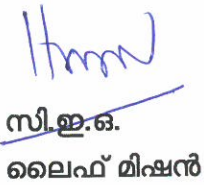 സി.ഇ.ഒ.
ലൈഫ് മിഷൻ